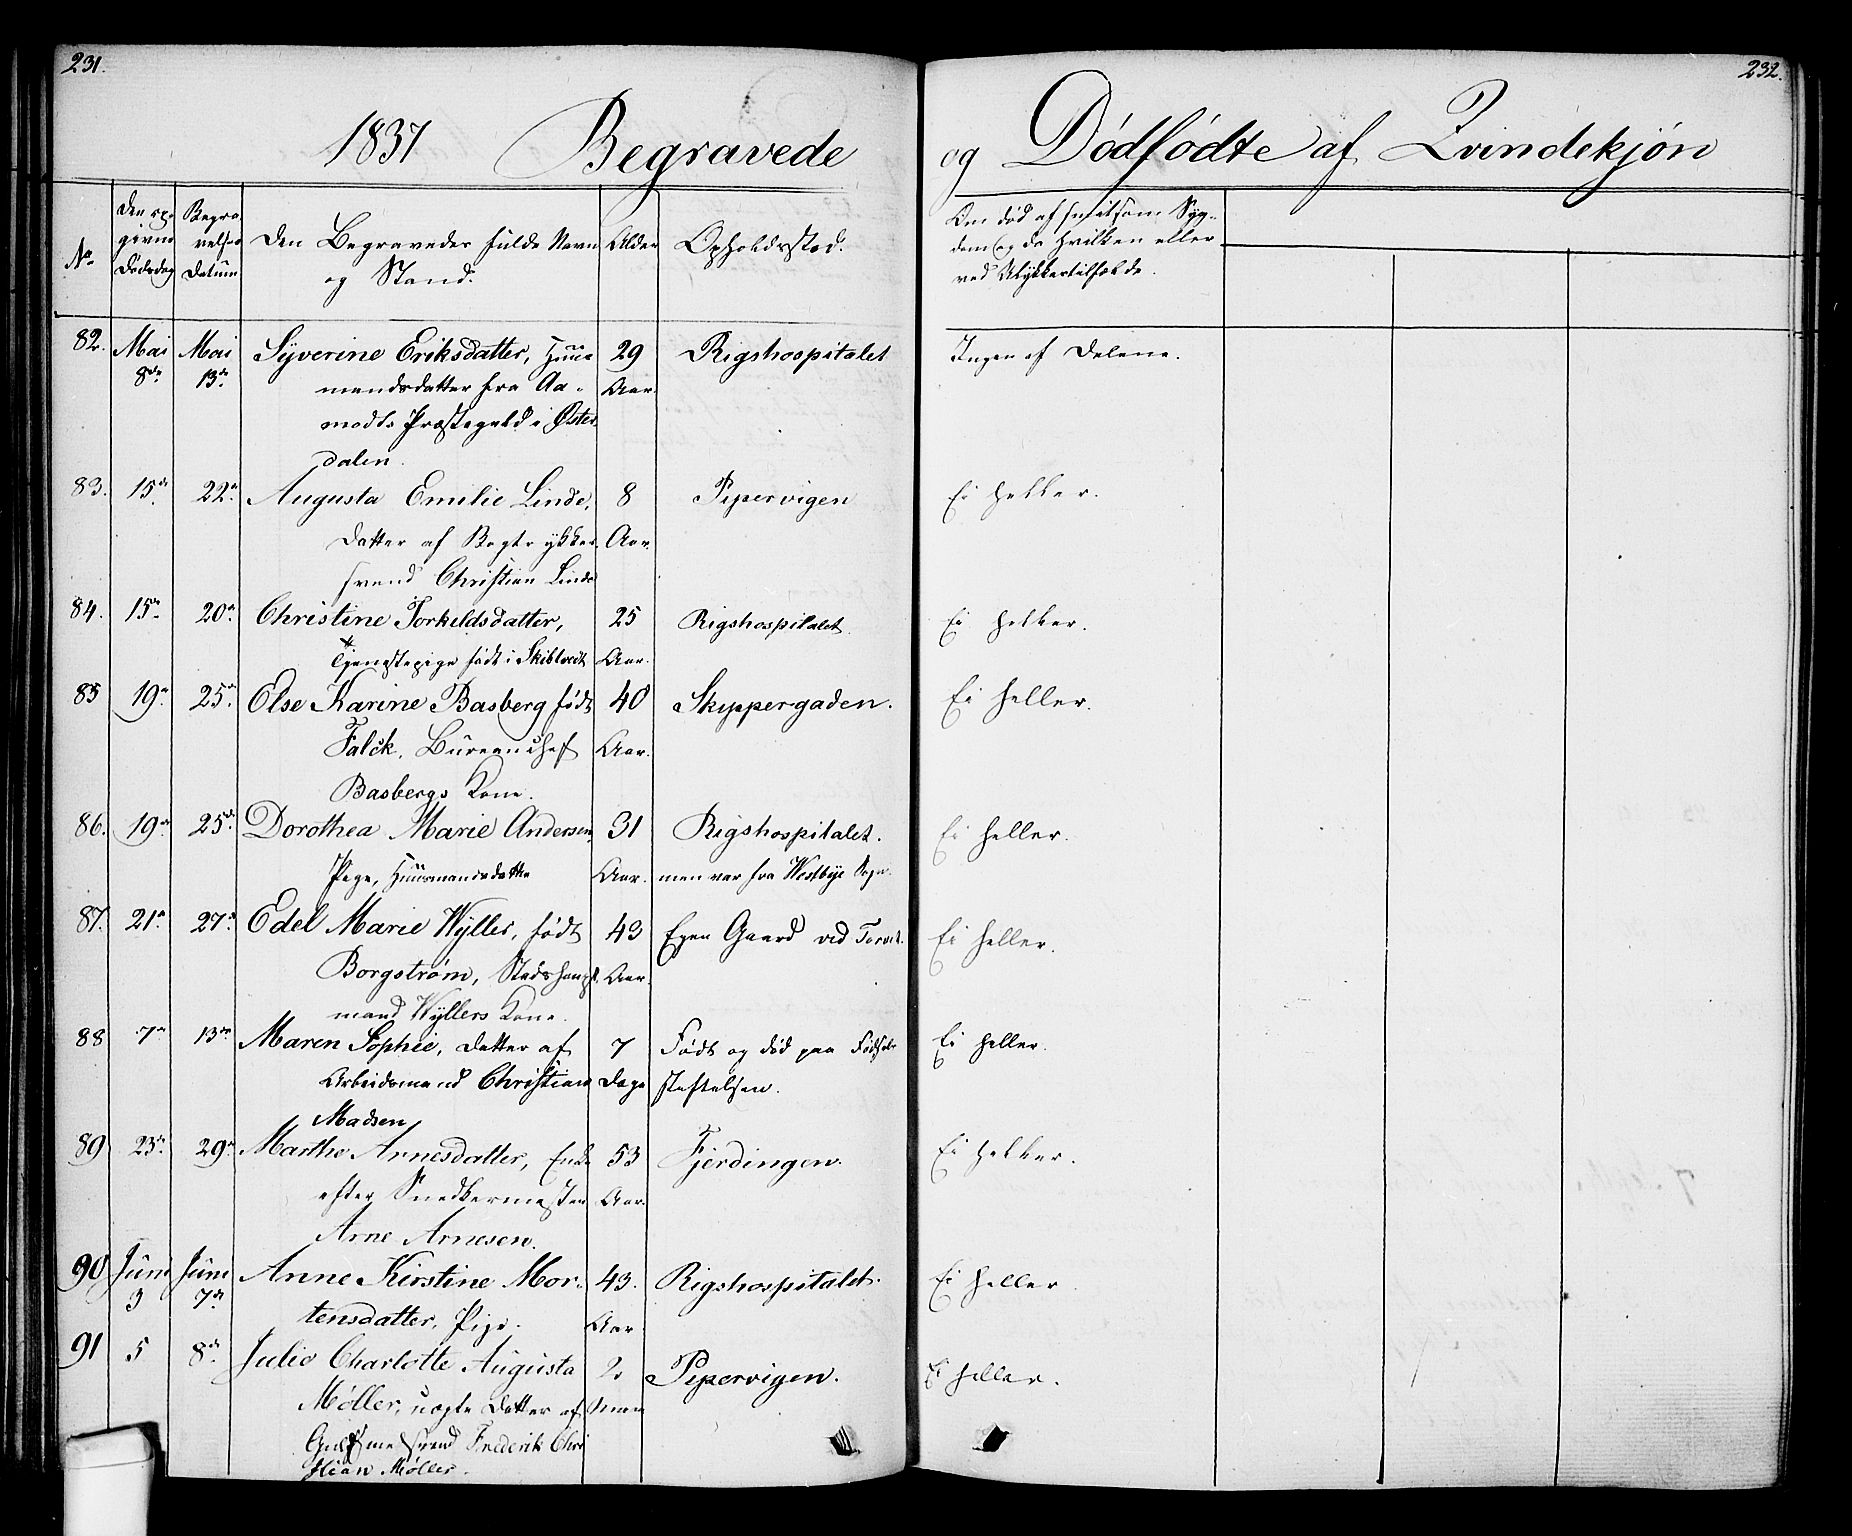 231.
1837 Begravede
No
Den op-
givne
Dødsdag
Begra-
velses
Datum
Den Begravedes fulde Navn
og Stand.
Alder
Opholdssted.
82. Mai 8de Mai 13de Syverine Eriksdatter, Huus- 29 Rigshospitalet
mandsdatter fra Aa- Aar.
modts Præstegield i Øster
dalen.
83. 15de 22de Augusta Emilie Linde, 8 Pipervigen
Datter af Bogtrykker Aar.
svend Christian Linde
84. 15de 20de Christine Torkildsdatter, 25 Rigshospitalet
Tjenestepige født i Skibtvedt Aar.
85 19de 25de Else Karine Basberg født 40 Skippergaden.
Falck, Bureauchef Aar.
Basbergs Kone.
86. 19de 25de Dorothea Marie Andersen, 31 Rigshospitalet.
Pige, Huusmandsdatter Aar. men var fra Westbye Sogn.
87. 21de 27de Edel Marie Wyller, født 43 Egen Gaard ved Torvet.
Borgstrøm, Stadshaupt- Aar.
mand Wyllers Kone.
88 7de 13de Maren Sophie, Datter af 7 Født og død paa Fødsels
Arbeidsmand Christian Dage stiftelsen.
Madsen
89 23de 29de Marthe Arnesdatter, Enke 53 Fjerdingen.
efter Snedkermester Aar.
Arne Arnesen.
90 Juni 3 Juni 7de Anne Kirstine Mor- 43. Rigshospitalet.
tensdatter, Pige. Aar
91 5 8de Julie Charlotte Augusta 2 Pipervigen.
Møller, uægte Datter af
Guldsmedsvend Frederik Chri
stian Møller.
232.
og Dødfødte af Qvindekjøn
Om død af smitsom Syg-
dom (og da hvilken eller
ved Ulykkestilfælde.
Ingen af Delene.
Ei heller.
Ei heller.
Ei heller.
Ei heller.
Ei heller.
Ei heller.
Ei heller.
Ei heller
Ei heller.